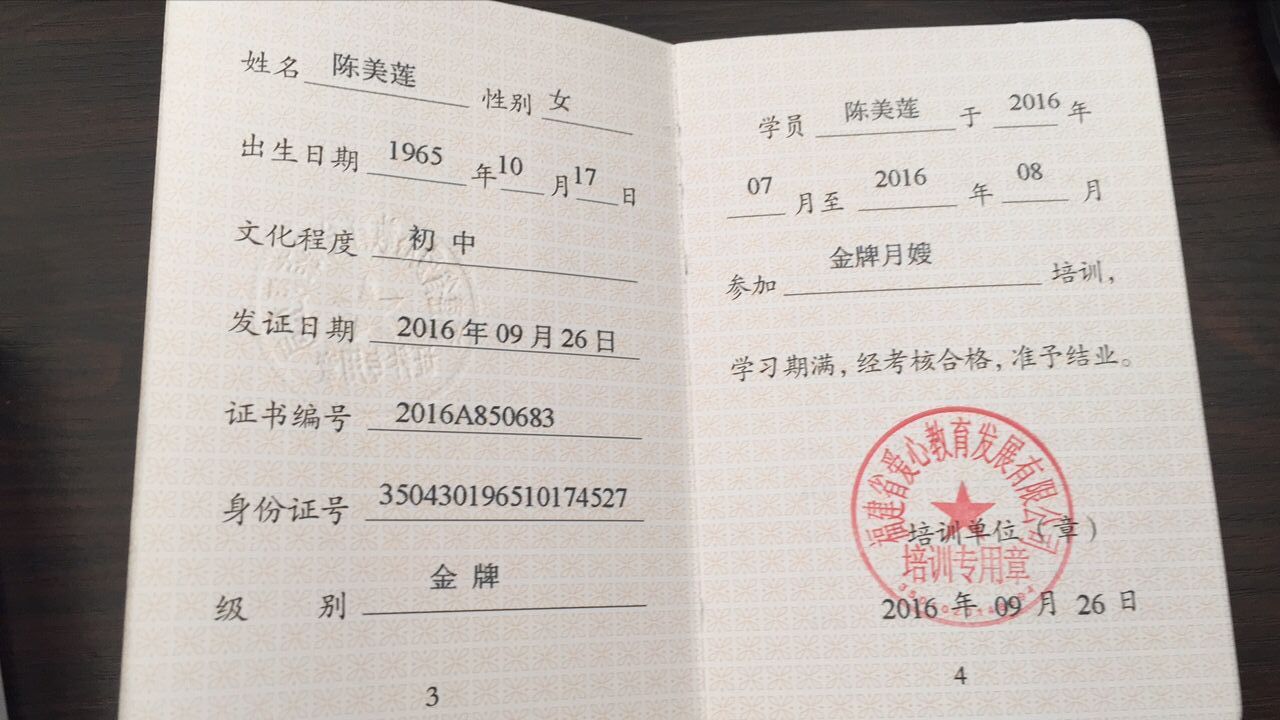 姓名 陈美莲 性别 女
出生日期 1965 年 10 月 17 日
文化程度 初中
发证日期 2016年09月26日
证书编号 2016A850683
身份证号 350430196510174527
级 别 金牌
3
学员 陈美莲 于 2016 年
07 月至 2016 年 08 月
参加 金牌月嫂 培训，
学习期满，经考核合格，准予结业。
福建省爱心教育发展有限公司
培训单位（章）
培训专用章
2016 年 09 月 26 日
4